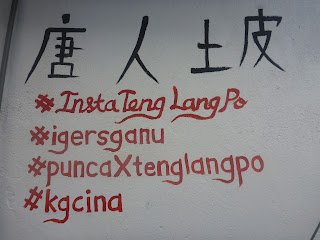 唐人土皮
#InstaTengLangPo
#igersganu
#puncaXtenglangpo
#kgcina